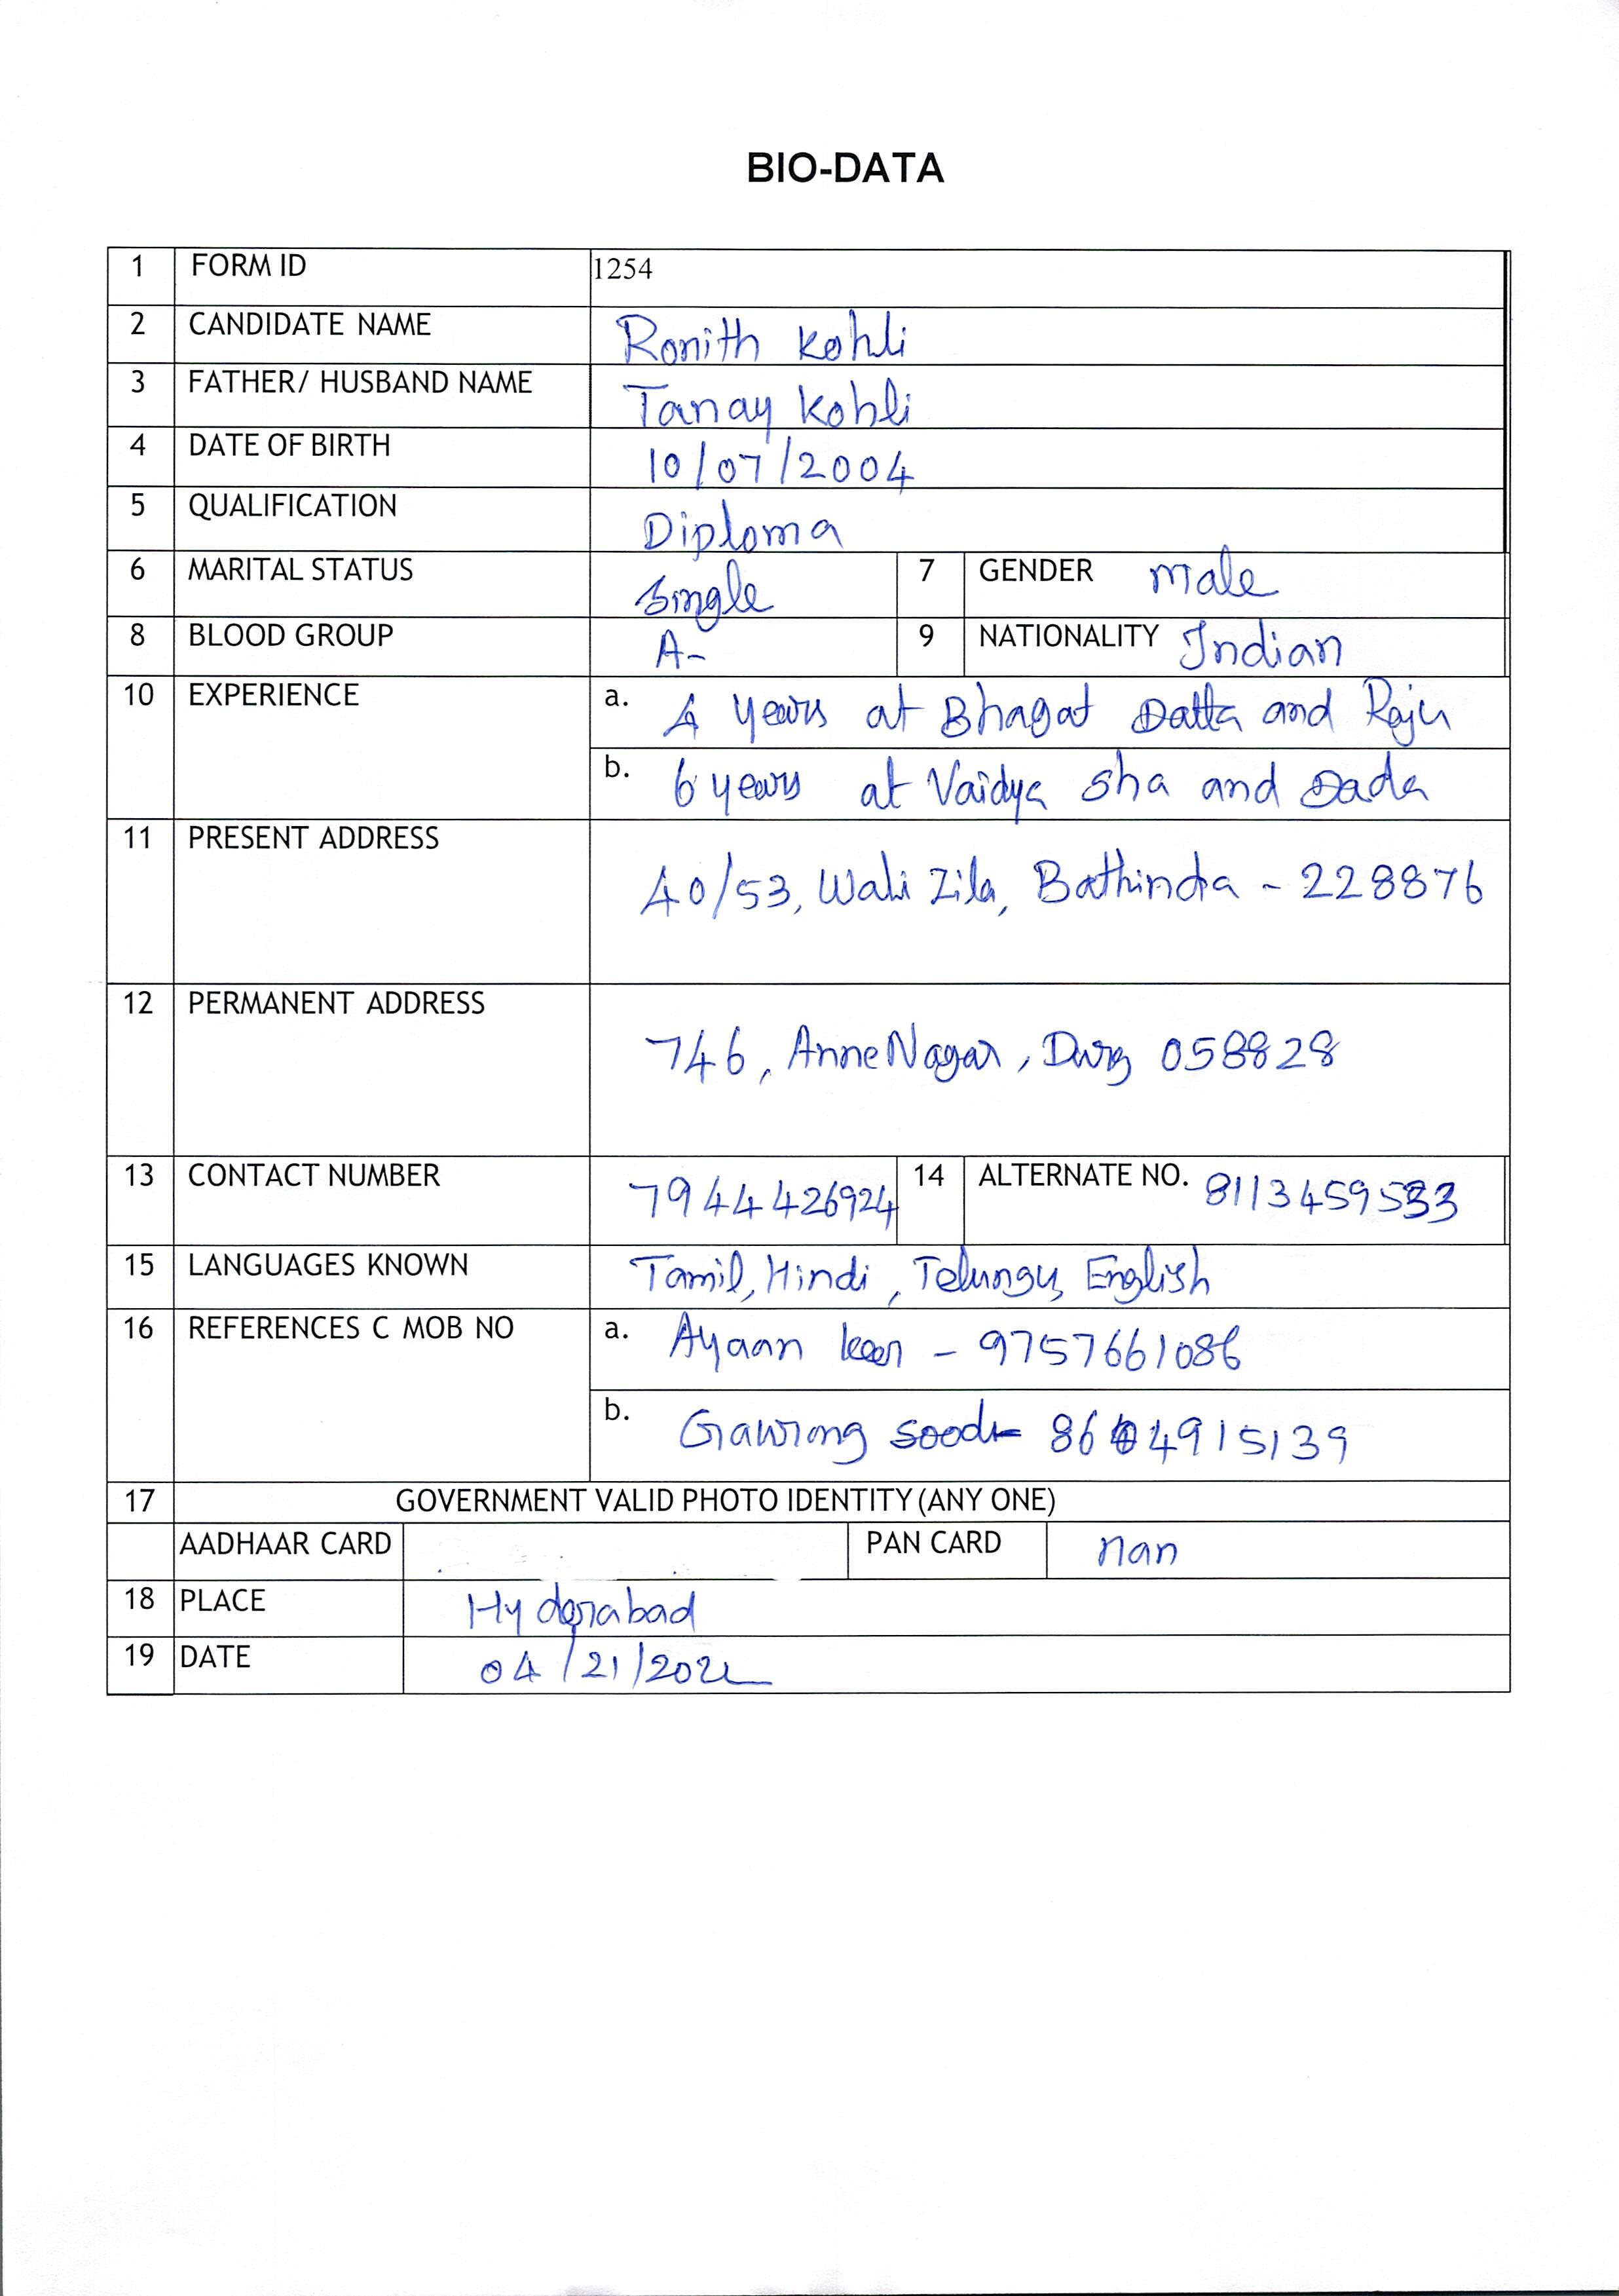 BIO-DATA
1 FORM ID 1254
2 CANDIDATE NAME Ronith Kohli
3 FATHER/ HUSBAND NAME Tanay Kohli
4 DATE OF BIRTH 10/07/2004
5 QUALIFICATION Diploma
6 MARITAL STATUS Single 7 GENDER Male
8 BLOOD GROUP A- 9 NATIONALITY Indian
10 EXPERIENCE a. 4 years at Bhagat Datta and Raju
b. 6 years at Vaidya Sha and Dada
11 PRESENT ADDRESS 40/53, Wali Zila, Bathinda - 228876
12 PERMANENT ADDRESS 746, Anne Nagar, Durg 058828
13 CONTACT NUMBER 7944426924 14 ALTERNATE NO. 8113459533
15 LANGUAGES KNOWN Tamil, Hindi, Telungu, English
16 REFERENCES C MOB NO a. Ayaan - 9757661086
b. Sood -
17 GOVERNMENT VALID PHOTO IDENTITY (ANY ONE)
AADHAAR CARD PAN CARD nan
18 PLACE Hyderabad
19 DATE 04/21/2022